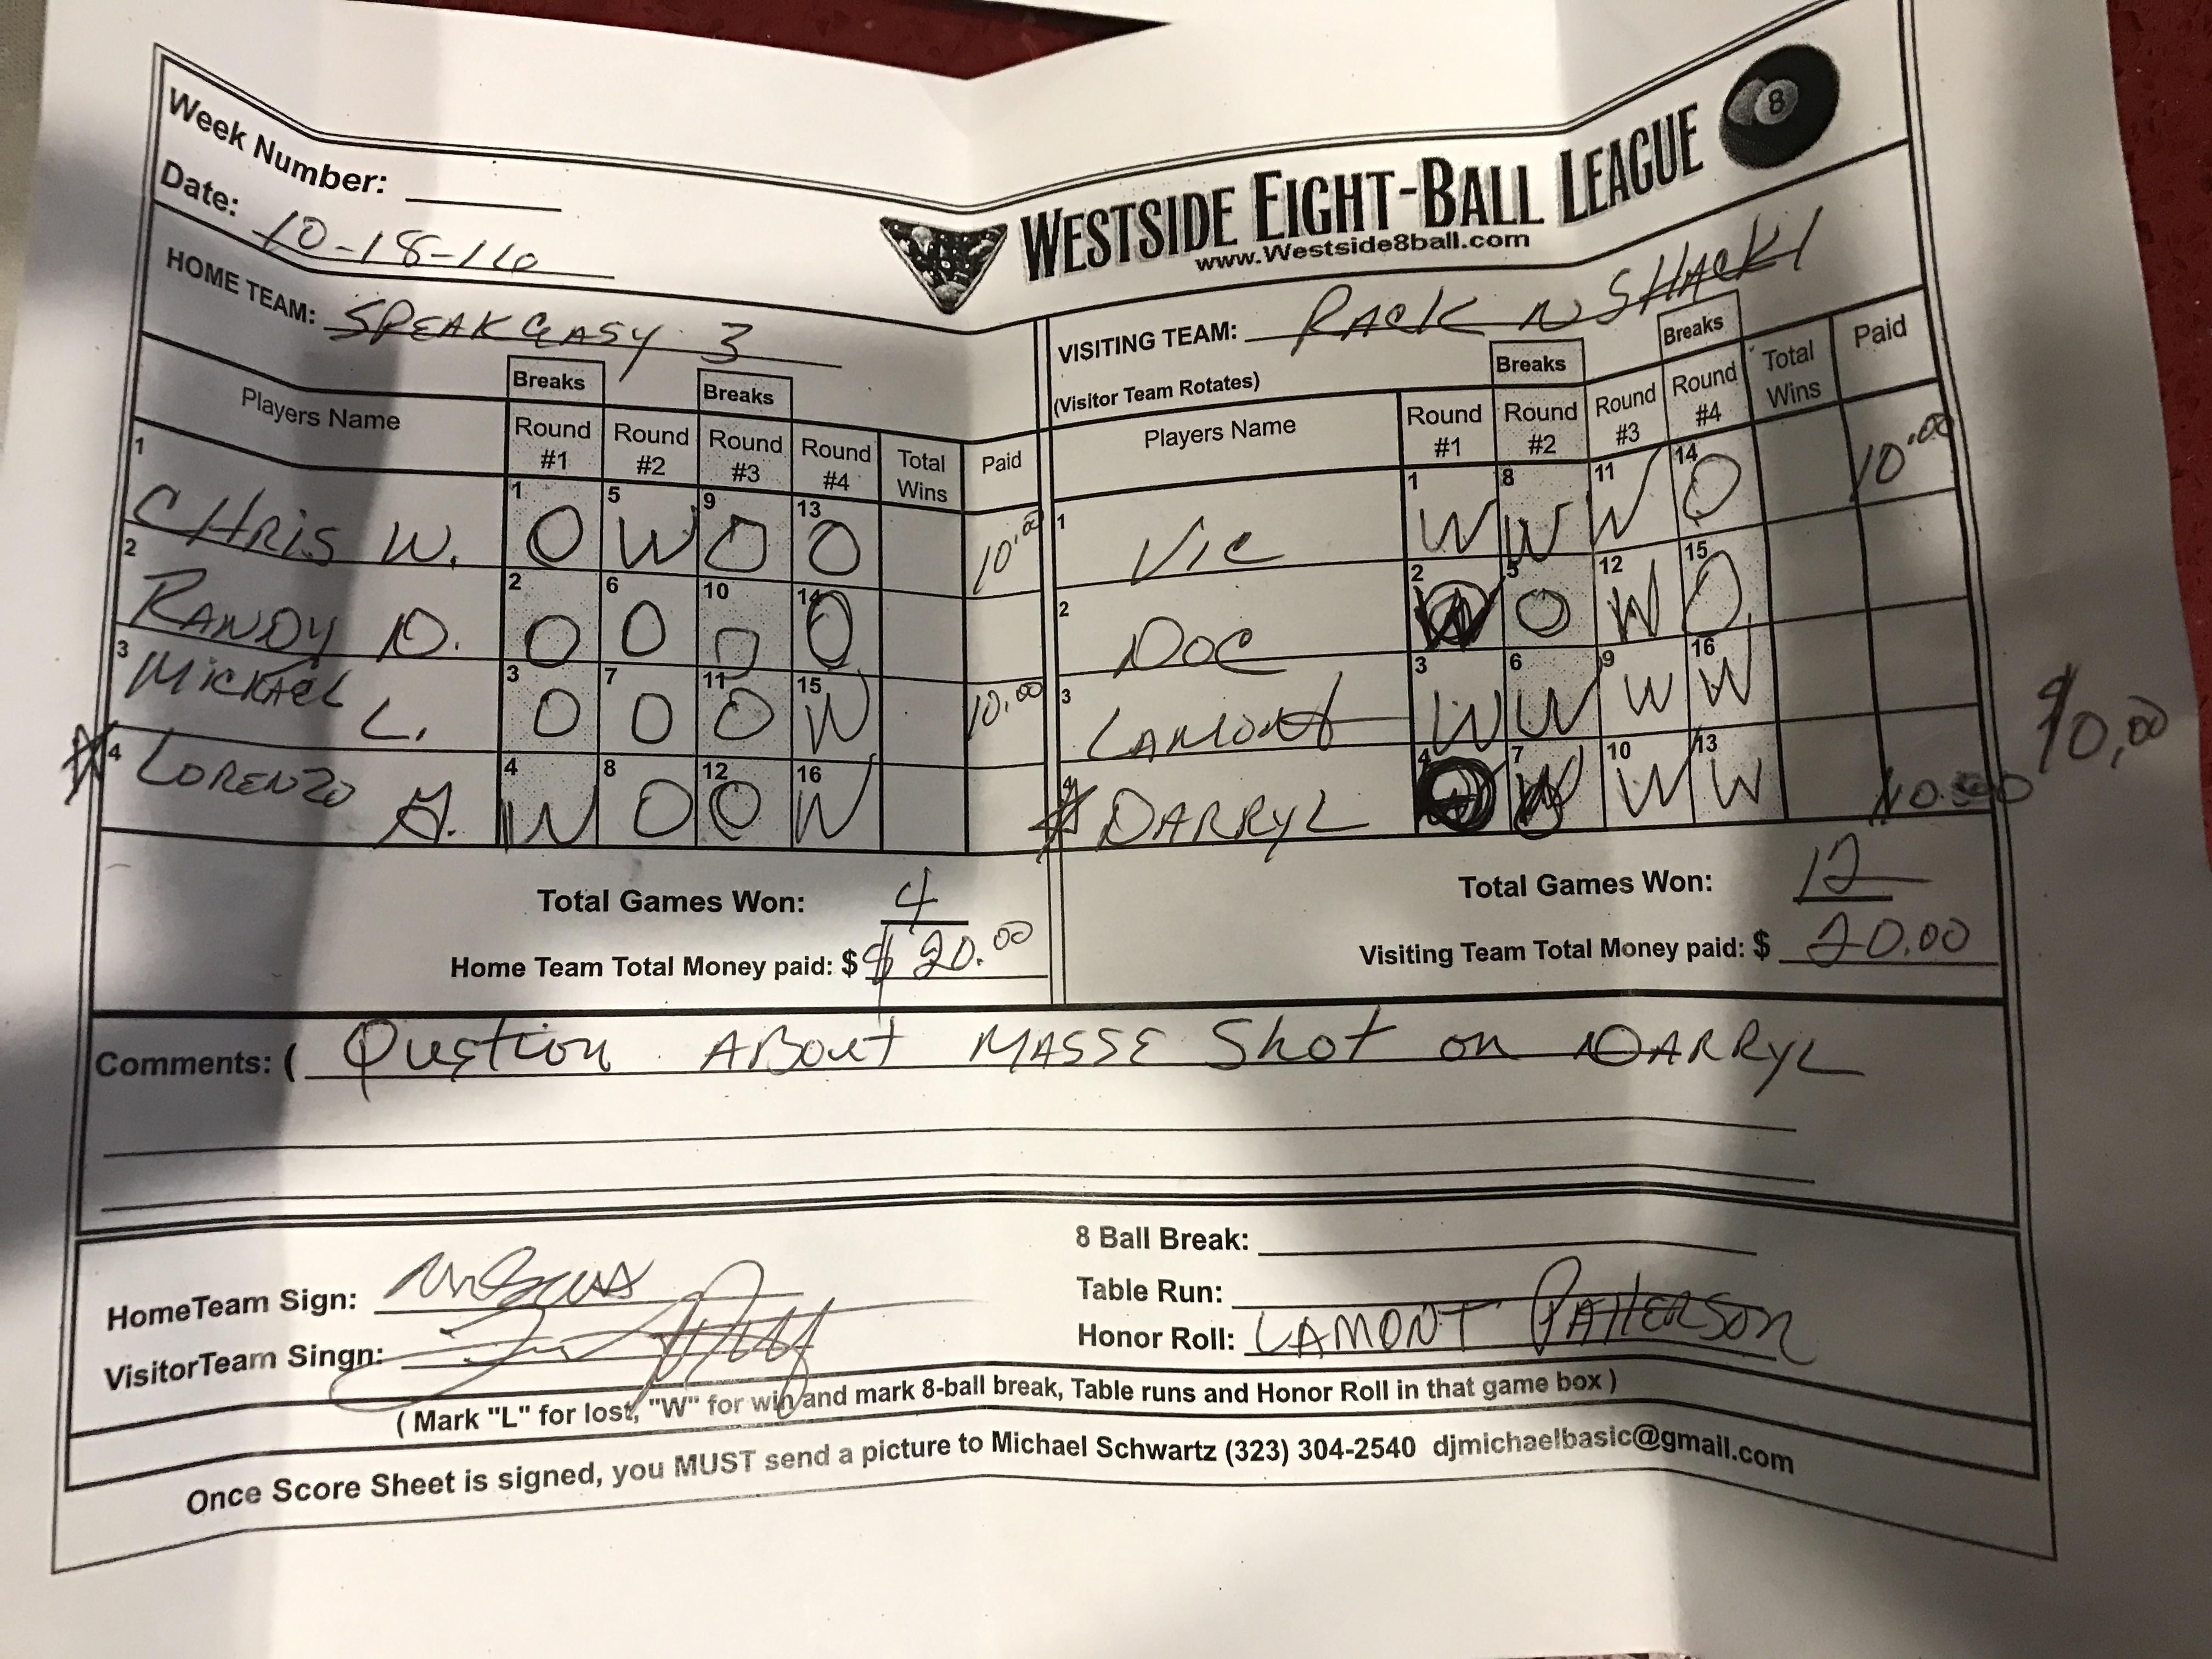 Week Number:
Date: 10-18-16
WESTSIDE EIGHT-BALL LEAGUE
8
www.Westside8ball.com
HOME TEAM: SPEAKEASY 3
VISITING TEAM: RACK N SHACK 1
(Visitor Team Rotates)
Breaks Breaks
Players Name Round #1 Round #2 Round #3 Round #4 Total Wins Paid
1 CHRIS W. 1 O 5 W 9 O 13 O 10.00
2 RANDY D. 2 O 6 O 10 O 14 O
3 MICKAEL L. 3 O 7 O 11 O 15 W 10.00
4 LORENZO A. 4 W 8 O 12 O 16 W
Total Games Won: 4
Home Team Total Money paid: $ $ 20.00
Breaks Breaks
Players Name Round #1 Round #2 Round #3 Round #4 Total Wins Paid
1 VIC 1 W 8 W 11 W 14 O 10.00
2 DOC 2 W 5 O 12 W 15 O
3 LAMONT 3 W 6 W 9 W 16 W $10.00
4 DARRYL 4 7 W 10 W 13 W
Total Games Won: 12
Visiting Team Total Money paid: $ 20.00
Comments: ( Qustion ABout MASSE Shot on DARRYL
HomeTeam Sign:
VisitorTeam Singn:
8 Ball Break:
Table Run:
Honor Roll: LAMONT PATTERSON
( Mark "L" for lost, "W" for win and mark 8-ball break, Table runs and Honor Roll in that game box )
Once Score Sheet is signed, you MUST send a picture to Michael Schwartz (323) 304-2540 djmichaelbasic@gmail.com